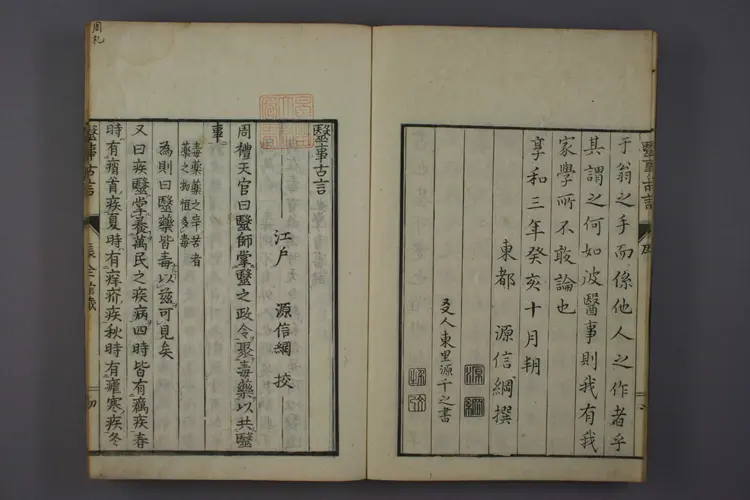 于翁之手而係他人之作者乎
其謂之何如彼醫事則我有我
家學所不敢論也
享和三年癸亥十月朔
東都 源信綱撰
友人東里源千之書
醫事古言
周禮
醫事古言
江戶 源信綱 校
周禮天官曰醫師掌醫之政令聚毒藥以共醫
事
毒藥藥之辛苦者
藥之物恒多毒
為則曰醫藥皆毒以茲可見矣
又曰疾醫掌養萬民之疾病四時皆有癘疾春
時有痟首疾夏時有痒疥疾秋時有瘧寒疾冬
醫事古言